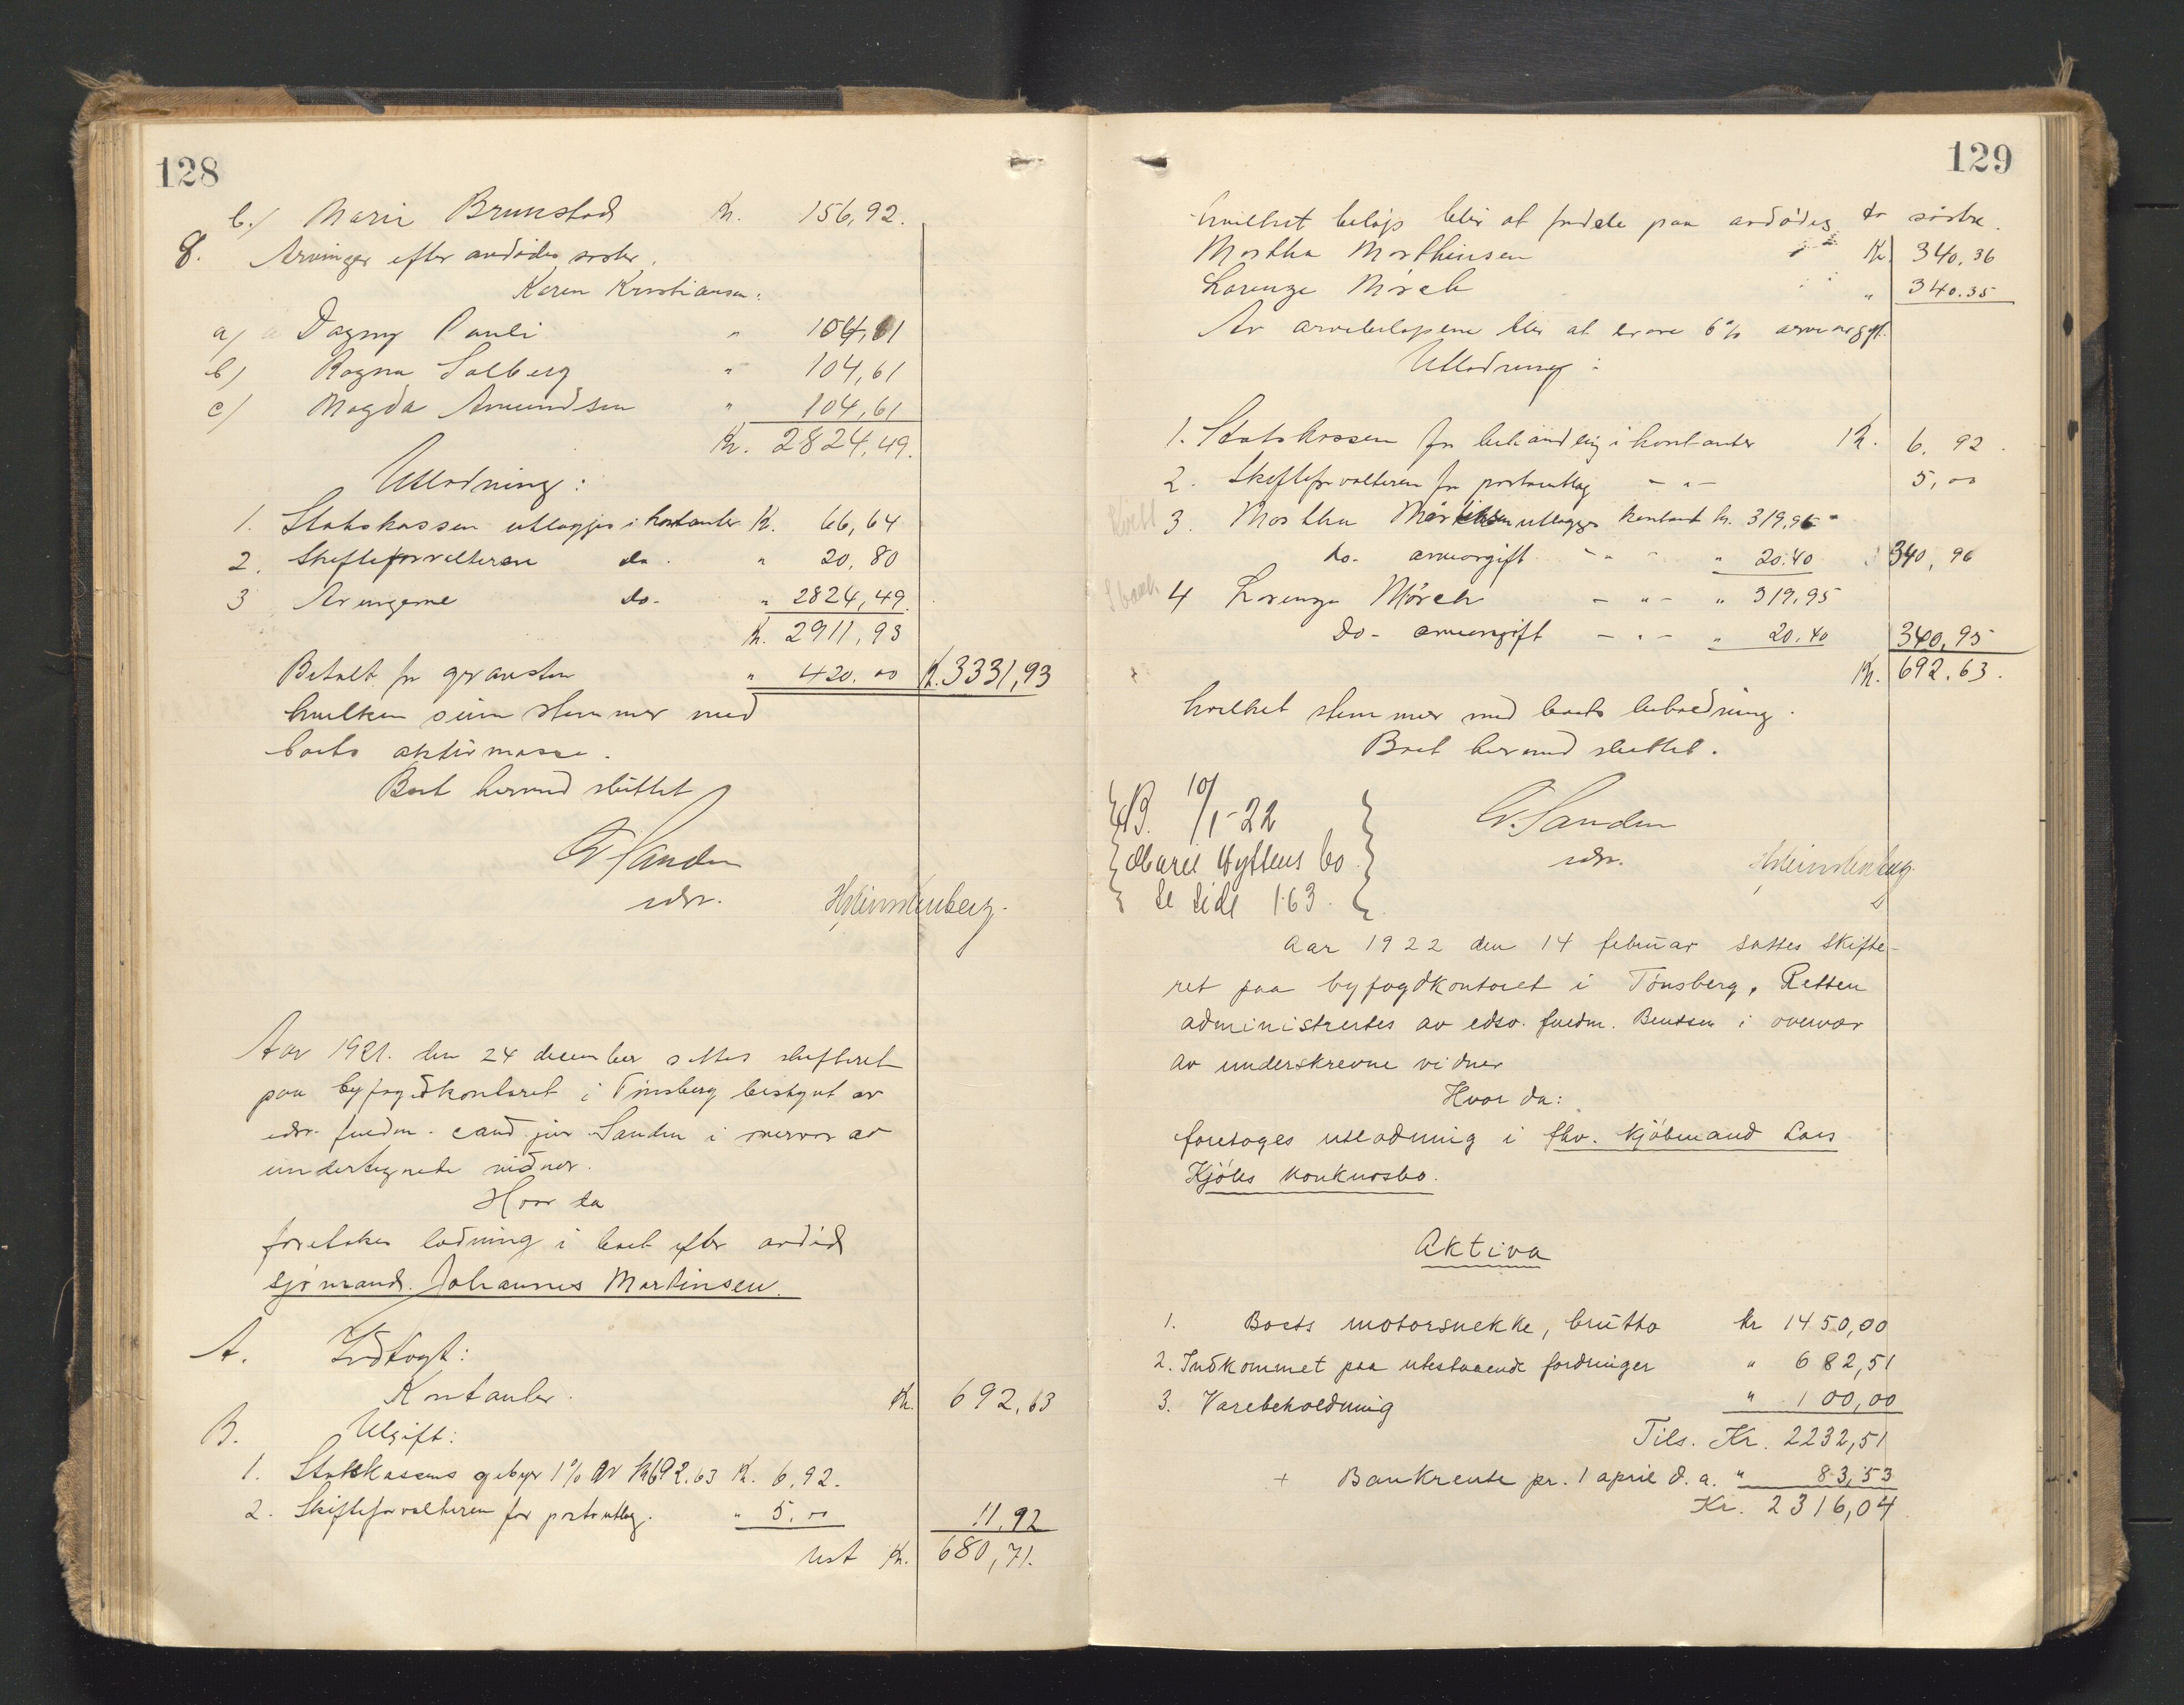 128
b.) Marie Brunstad Kr. 156,92.
8. Arvinger efter avdødes søster,
Karen Kristiansen:
a) Dagny Pauli " 104,61
b) Ragna Solberg " 104,61
c) Magda Amundsen " 104,61
Kr. 2824,49.
Utlodning:
1. Statskassen utlægges i kontanter K. 66,64
2. Skifteforvalteren do. " 20,80
3 Arvingerne do. " 2824,49
Kr. 2911,93
Betalt for gravsten " 420.00 K. 3331,93
hvilken sum stemmer med
boets aktivmasse.
Boet hermed sluttet
G Sanden
edsv.
Aar 1921. den 24 december sattes skifteret
paa byfogdkontoret i Tønsberg bestyrt av
edsv. fuldm. cand jur Sanden i overvær av
undertegnede vidner.
Hvor da
foretokes lodning i boet efter avdød
sjømand. Johannes Martinsen.
A. Indtægt:
Kontanter. Kr. 692,63
B. Utgift:
1. Statskassens gebyr 1% av K 692.63 K. 6,92.
2. Skifteforvalteren for portoutlæg. " 5.00 11,92
rest Kr. 680,71.
129
hvilket beløp blir at fordele paa avdødes to søstre.
Martha Marthinsen Kr. 340,36
Lorenze Mørch " 340.35
Av arvebeløpene blir at svare 6% arveavgift.
Utlodning:
1. Statskassen for behandling i kontanter K. 6,92.
2. Skifteforvalteren for portoutlæg - " - 5,00
3. Martha utlægges kontant kr. 319,96
do. arveavgift - " - " 20.40 340,96
4 Lorenze Mørch - " - " 319,95
do- arveavgift - " - " 20.40 340,95
Kr. 692.63.
hvilket stemmer med boets beholdning.
Boet hermed sluttet.
NB. 10/1-22
Marie Hyttens bo
Se side 163.
G. Sanden
edsv.
Aar 1922 den 14 februar sattes skifte-
ret paa byfogdkontoret i Tønsberg, Retten
administrertes av edsv. fuldm. Bentsen i overvær
av underskrevne vidner
Hvor da:
foretoges utlodning i fhv. kjøbmand Lars
Kjøles konkursbo.
Aktiva
1. Boets motorsnekke, brutto kr 1450,00
2. Indkommet paa utestaaende fordringer " 682,51
3. Varebeholdning " 100,00
Tils. Kr. 2232,51
+ Bankrente pr. 1 april d. a. " 83,53
Kr. 2316,04